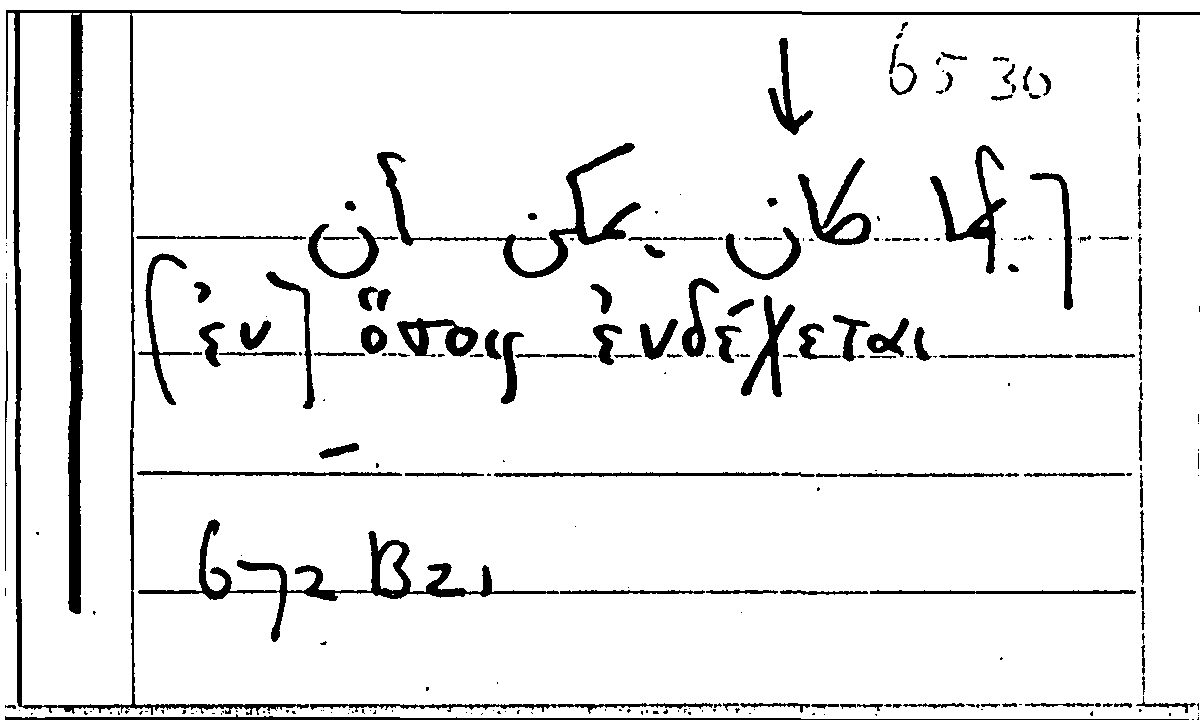 ↓ 6530
[فيما كان يمكن أن
[ἐν] ὅσοις ἐνδέχεται
672 B21